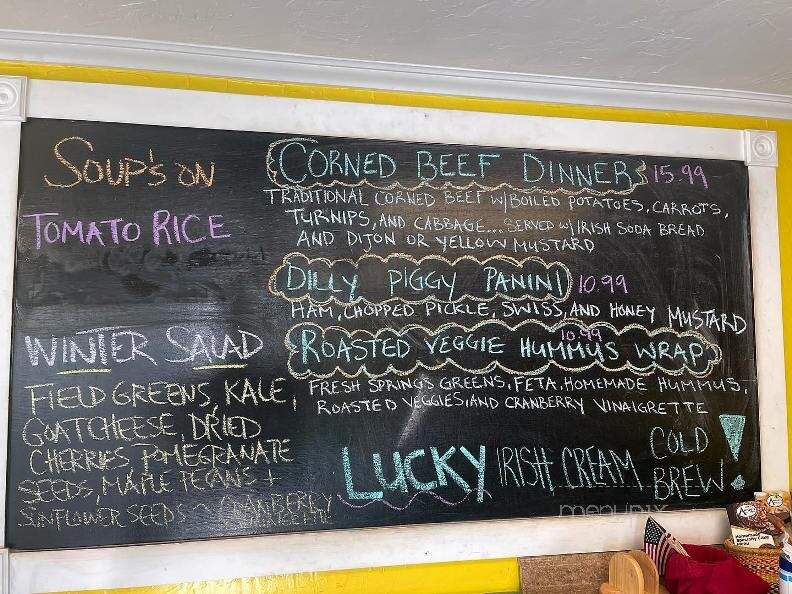 SOUP'S ON
TOMATO RICE
WINTER SALAD
FIELD GREENS, KALE,
GOAT CHEESE, DRIED
CHERRIES, POMEGRANATE
SEEDS, MAPLE PECANS +
SUNFLOWER SEEDS ~ CRANBERRY
VINAIGRETTE
CORNED BEEF DINNER 15.99
TRADITIONAL CORNED BEEF W/BOILED POTATOES, CARROTS,
TURNIPS, AND CABBAGE... SERVED W/IRISH SODA BREAD
AND DIJON OR YELLOW MUSTARD
DILLY PIGGY PANINI 10.99
HAM, CHOPPED PICKLE, SWISS, AND HONEY MUSTARD
10.99
ROASTED VEGGIE HUMMUS WRAP
FRESH SPRINGS GREENS, FETA, HOMEMADE HUMMUS,
ROASTED VEGGIES, AND CRANBERRY VINAIGRETTE
LUCKY IRISH CREAM COLD
BREW!
menupix